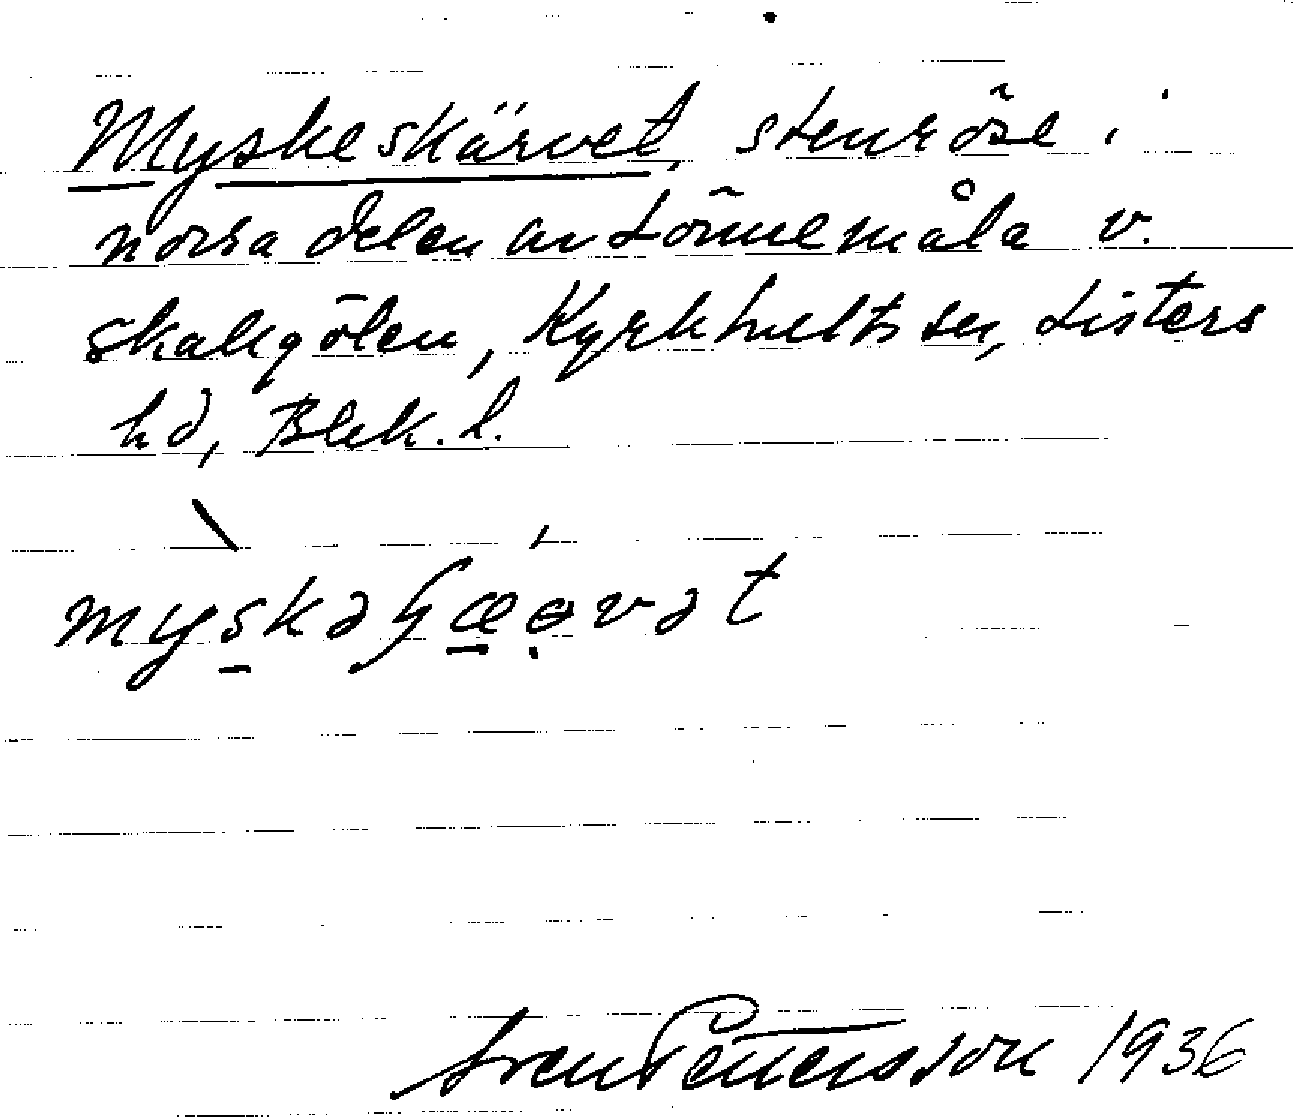 Myskeskärvet, stenröse i
norra delen av Lönnemåla v.
Skakgölen, Kyrkhults sn, Listers
hd, Blek. l.
Sven Pettersson 1936